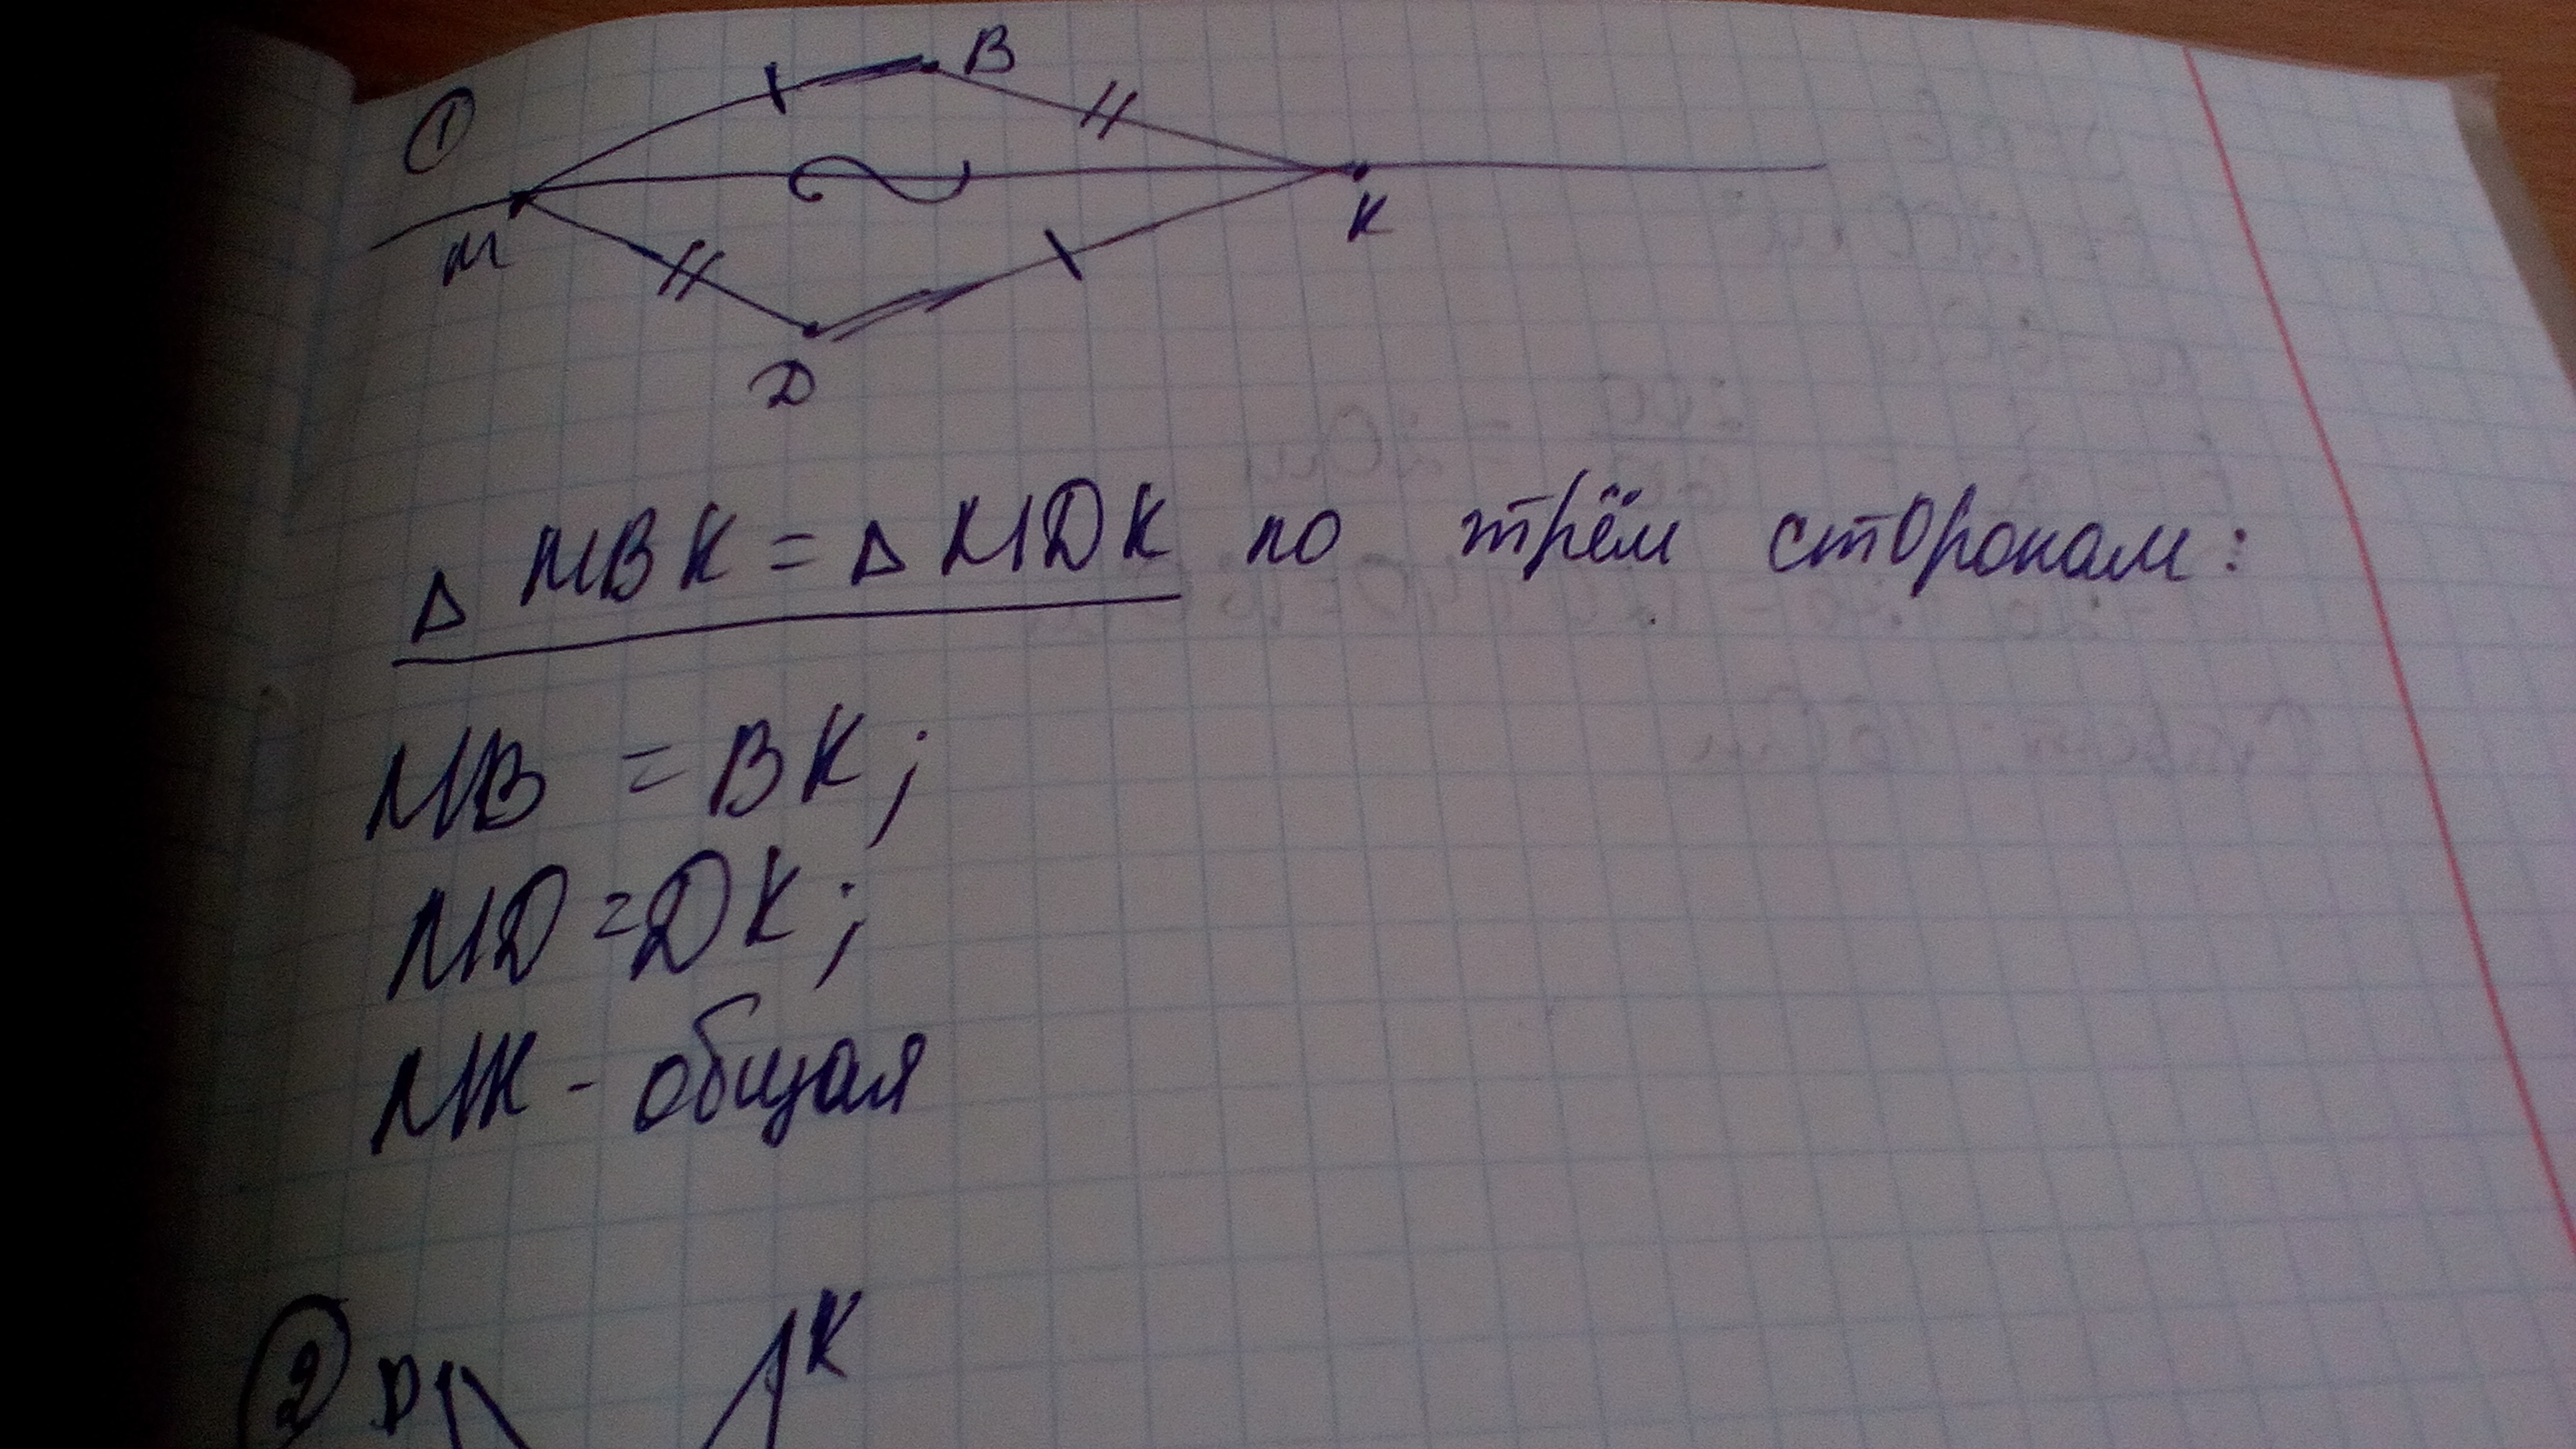 1
B
M
K
D
Δ MBK = Δ MDK по трём сторонам:
MB = BK;
MD = DK;
MK - общая
2 D K